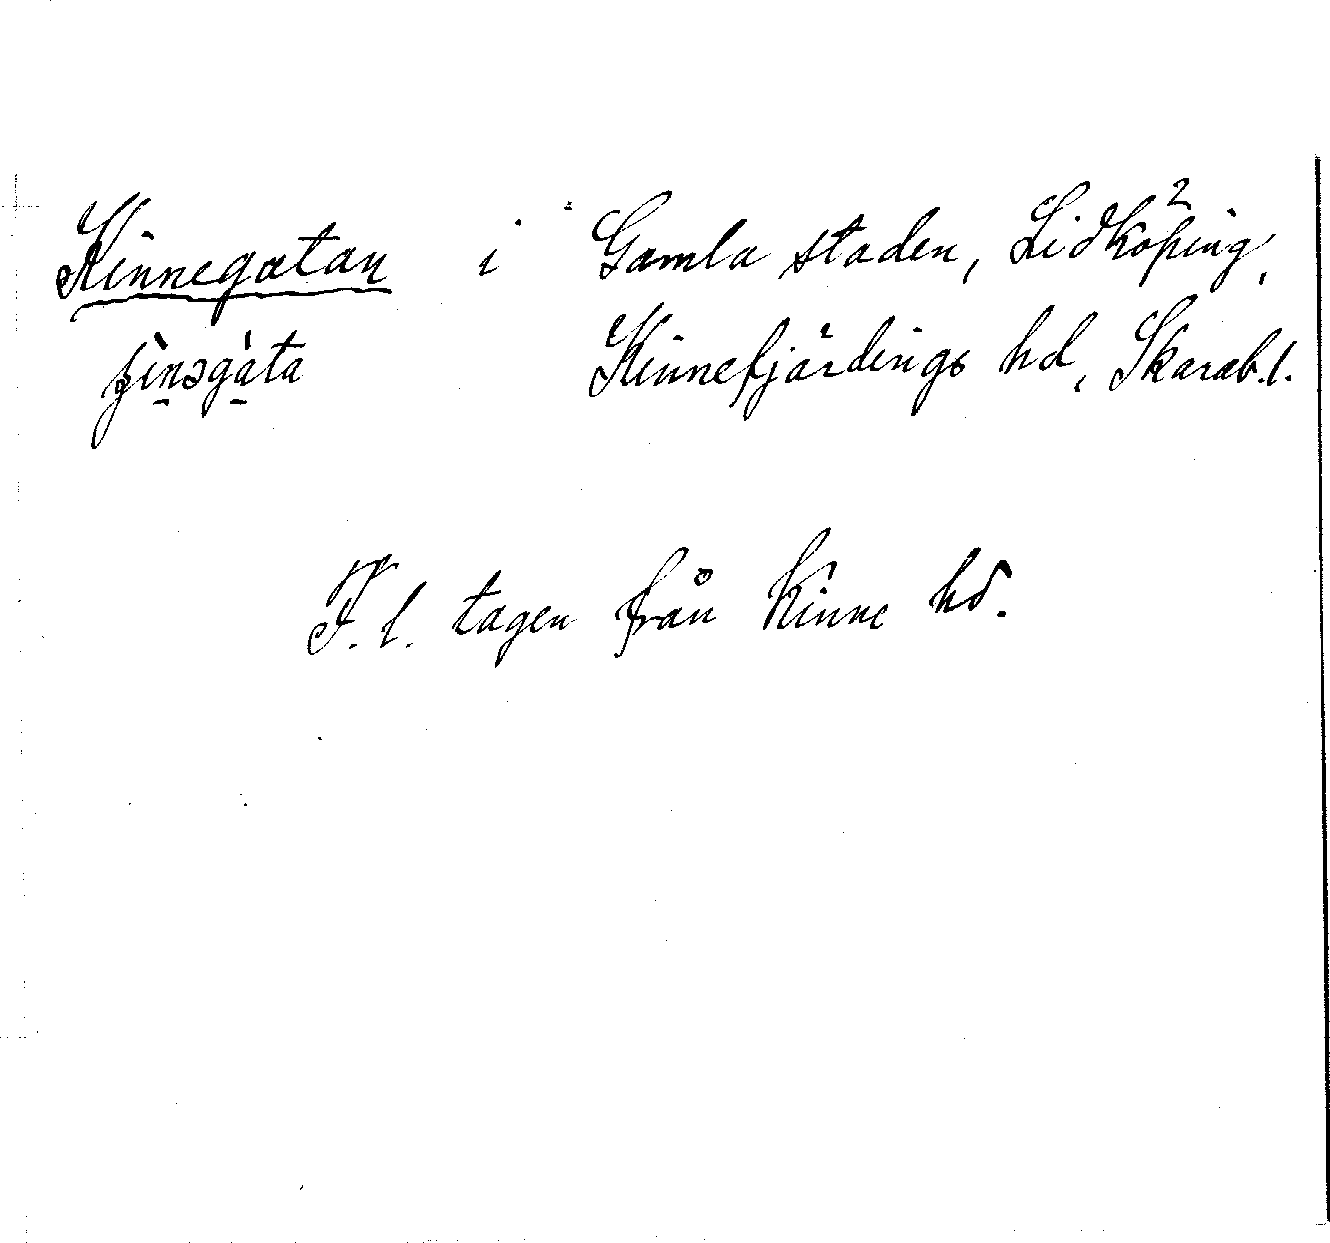 Kinnegatan i Gamla staden, Lidköping,
Kinnefjärdings hd, Skarab.l.
F.l. tagen från Kinne hd.